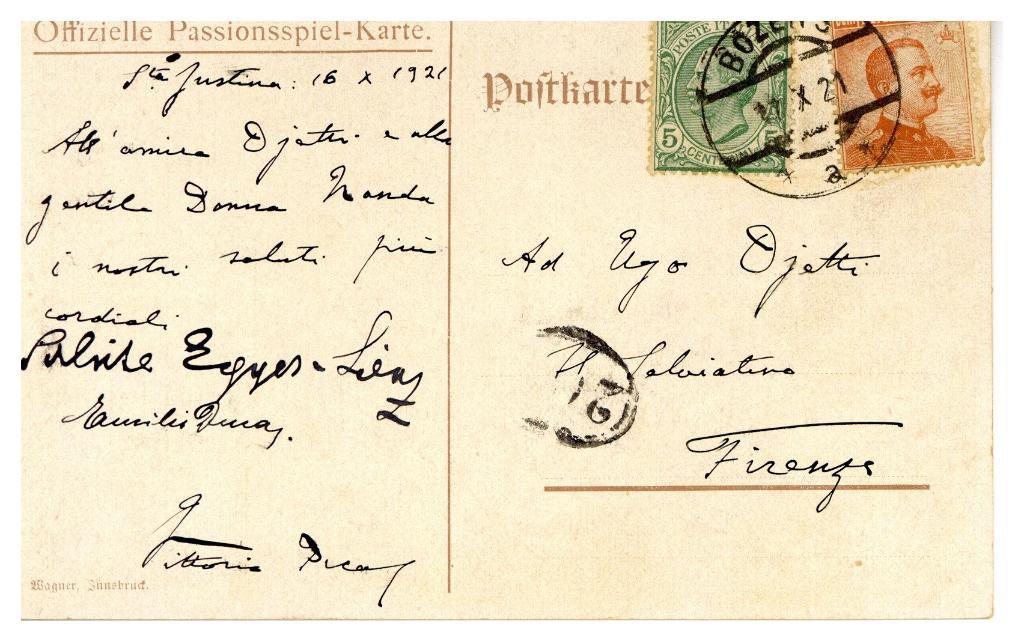 Offizielle Passionsspiel-Karte.
Sta Justina: 16 X 1921
All'amico Ojetti e alla
gentile Donna Nanda
i nostri saluti più
cordiali
Salute Egger-Lienz
Vittorio Pica
Wagner, Innsbruck.
Postkarte
POSTE IT
5 CENTESIMI 5
BOZEN 3
17 X 21
a
Ad Ugo Ojetti
Il Salviatino
Firenze